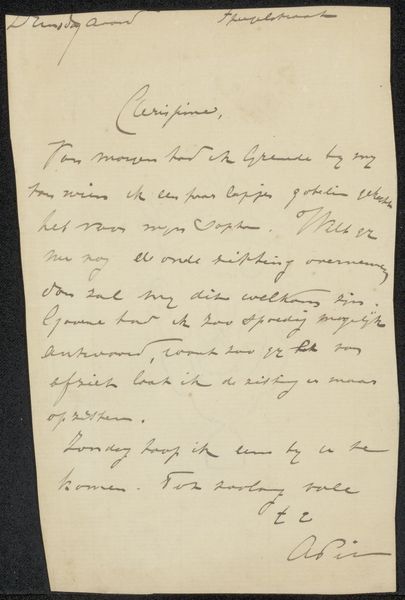 Dinsdag avond
Carissime,
Van morgen had ik Grende by my
van wien ik een paar lapjes gobelin
het voor myn Sopha. Wilt gy
nu nog de oude zitting overnemen
dan zal my dit welkom zijn.
Gaarne had ik zoo spoedig mogelijk
antwoord, want zoo gy er van
afziet laat ik de zitting er maar
op zitten.
Zondag hoop ik eens by u te
komen. Tot zoolang vale
t t